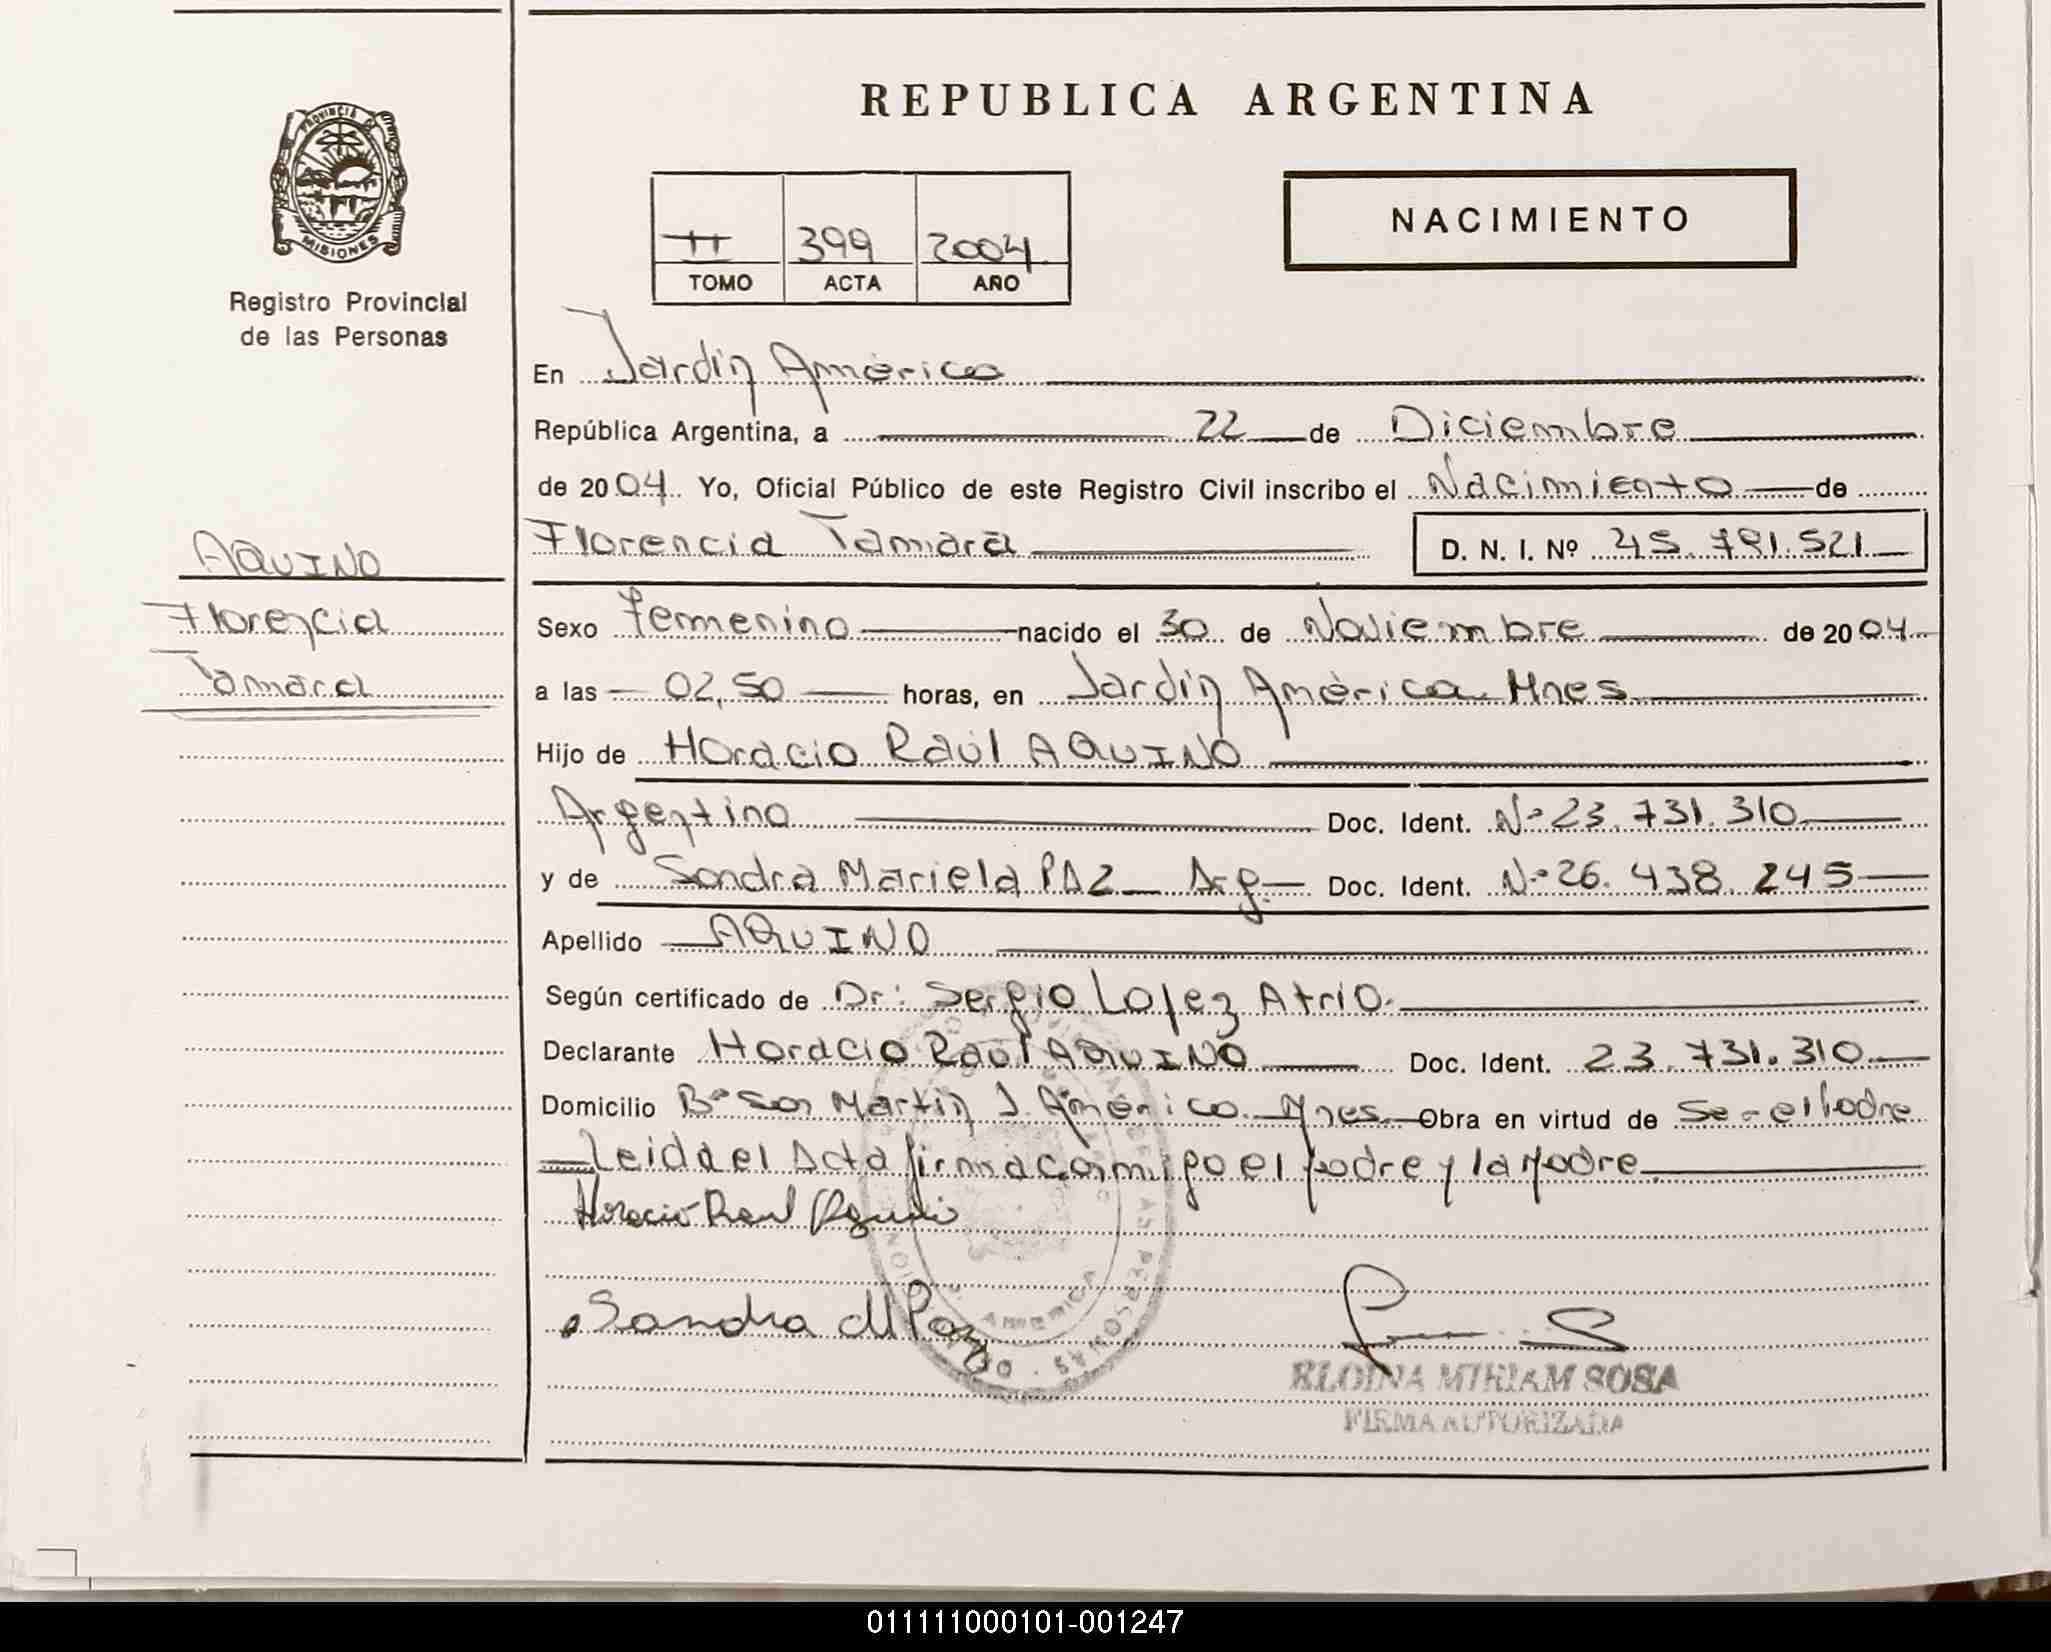 REPUBLICA ARGENTINA
PROVINCIA DE
MISIONES
Registro Provincial
de las Personas
II 399 2004
TOMO ACTA AÑO
NACIMIENTO
En Jardín América
República Argentina, a 22 de Diciembre
de 2004 Yo, Oficial Público de este Registro Civil inscribo el Nacimiento de
Florencia Tamara D. N. I. Nº 45.791.521
AQUINO
Florencia
Tamara
Sexo Femenino nacido el 30 de Noviembre de 2004
a las 02,50 horas, en Jardín América Mnes
Hijo de Horacio Raúl AQUINO
Argentino Doc. Ident. Nº 23.731.310
y de Sandra Mariela PAZ Arg. Doc. Ident. Nº 26.438.245
Apellido AQUINO
Según certificado de Dr: Sergio Lopez Atrio.
Declarante Horacio Raúl AQUINO Doc. Ident. 23.731.310
Domicilio Bº San Martín J. América. Mnes. Obra en virtud de Ser el Padre
Leida el Acta firma conmigo el padre y la Madre.
Horacio Raul Aquino
Sandra M Paz
AMERICA
PERSONAS
ELOINA MIRIAM SOSA
FIRMA AUTORIZADA
011111000101-001247